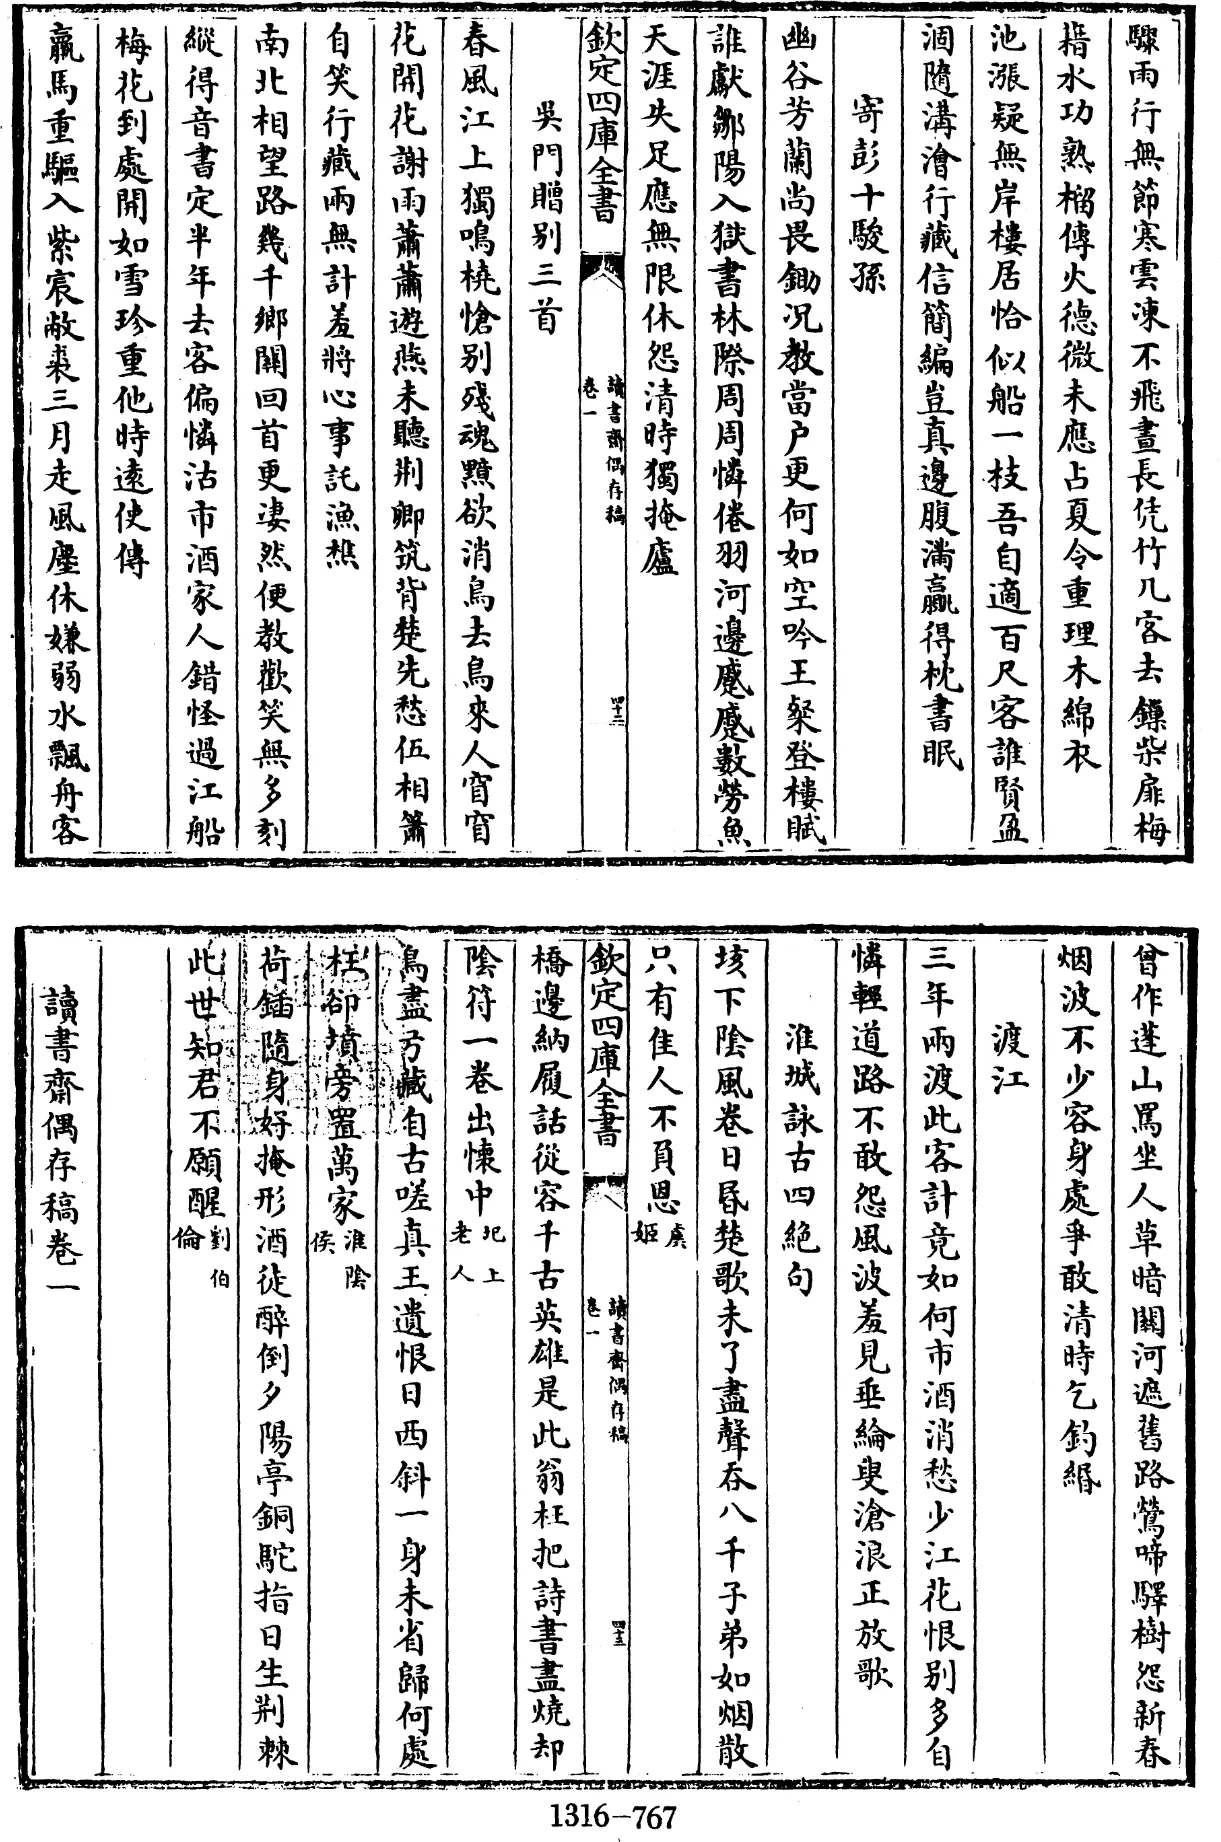 驟雨行無節寒雲凍不飛晝長凭竹几客去鏁柴扉梅
藉水功熟榴傳火德微未應占夏令重理木綿衣
池漲疑無岸樓居恰似船一枝吾自適百尺客誰賢盈
涸隨溝澮行藏信簡編豈真邊腹滿贏得枕書眠
寄彭十駿孫
幽谷芳蘭尚畏鋤況教當户更何如空吟王粲登樓賦
誰獻鄒陽入獄書林際周周憐倦羽河邊蹙蹙數勞魚
天涯失足應無限休怨清時獨掩廬
欽定四庫全書
讀書齋偶存稿
卷一
四十二
吳門贈别三首
春風江上獨鳴橈愴别殘魂黯欲消鳥去鳥來人窅窅
花開花謝雨蕭蕭遊燕未聽荆卿筑背楚先愁伍相簫
自笑行藏兩無計羞將心事託漁樵
南北相望路幾千鄉關回首更凄然便教歡笑無多刻
縱得音書定半年去客偏憐沽市酒家人錯怪過江船
梅花到處開如雪珍重他時遠使傳
羸馬重驅入紫宸敝裘三月走風塵休嫌弱水飄舟客
曾作蓬山罵坐人草暗關河遮舊路鶯啼驛樹怨新春
烟波不少容身處爭敢清時乞釣緡
渡江
三年兩渡此客計竟如何市酒消愁少江花恨别多自
憐輕道路不敢怨風波羞見垂綸叟滄浪正放歌
淮城詠古四絶句
垓下陰風卷日昏楚歌未了盡聲吞八千子弟如烟散
只有佳人不負恩虞姬
欽定四庫全書
讀書齋偶存稿
卷一
四十三
橋邊納履話從容千古英雄是此翁枉把詩書盡燒却
陰符一卷出懷中圯上老人
鳥盡弓藏自古嗟真王遺恨日西斜一身未省歸何處
枉卻墳旁置萬家淮陰侯
荷鍤隨身好掩形酒徒醉倒夕陽亭銅駝指日生荆棘
此世知君不願醒劉伯倫
讀書齋偶存稿卷一
1316-767